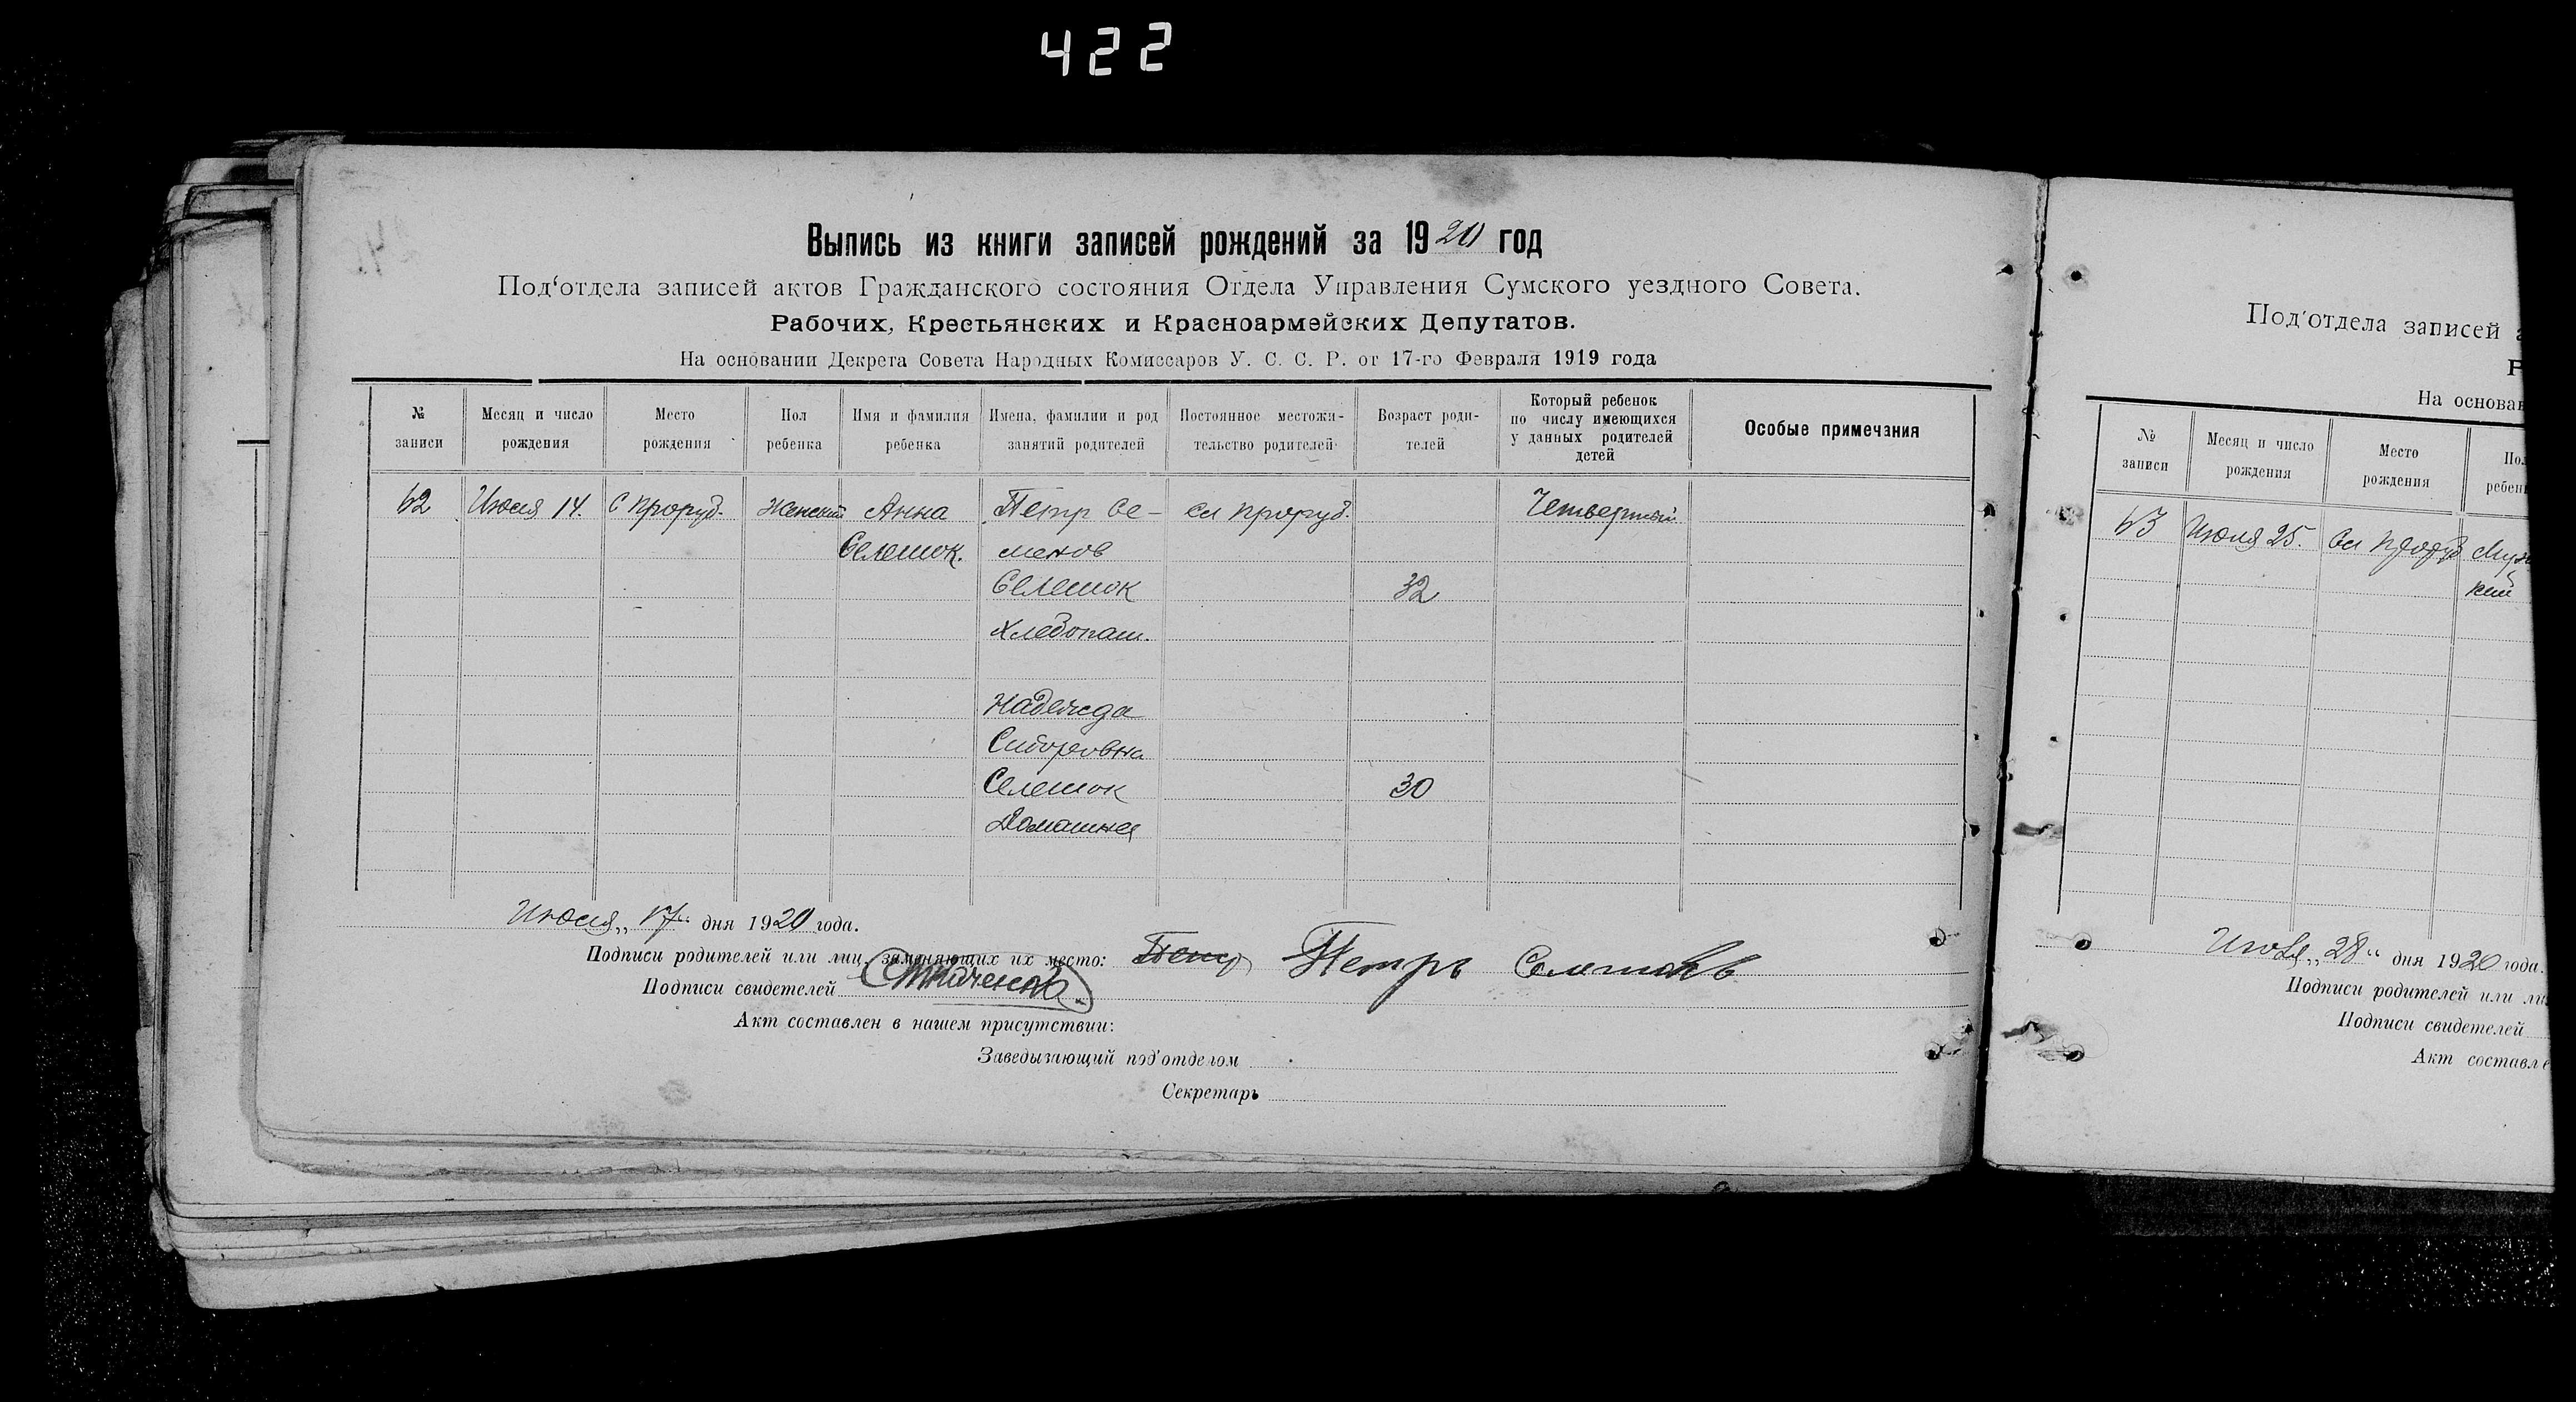 422
Выпись из книги записей рождений за 1920 год
Под‘отдела записей актов Гражданского состояния Отдела Управления Сумского уездного Совета.
Рабочих, Крестьянских и Красноармейских Депутатов.
На основании Декрета Совета Народных Комиссаров У. С. С. Р. от 17-го Февраля 1919 года
№ записи
Месяц и число рождения
Место рождения
Пол ребенка
Имя и фамилия ребенка
Имена, фамилии и род занятий родителей
Постоянное местожи-тельство родителей
Возраст роди-телей
Который ребенок по числу имеющихся у данных родителей детей
Особые примечания
62 Июля 14. С Проруб. Женский Анна Петр Се- сл проруб. Четвертый
Селешок. менов
Селешок 32
Хлебопаш.
Надежда
Сидоровна
Селешок 30
Домашняя
Июля „17“ дня 1920 года.
Подписи родителей или лиц, заменяющих их место: Петр Петръ
Подписи свидетелей
Акт составлен в нашем присутствии:
Заведызающий под'отделом
Секретарь
Под'отдела записей
На основан
№ записи
Месяц и число рождения
Место рождения
Пол ребен
63 Июля 25. Сл Проруб Муж
кий
Июля „28“ дня 1920 года.
Подписи родителей или ли
Подписи свидетелей
Акт составле